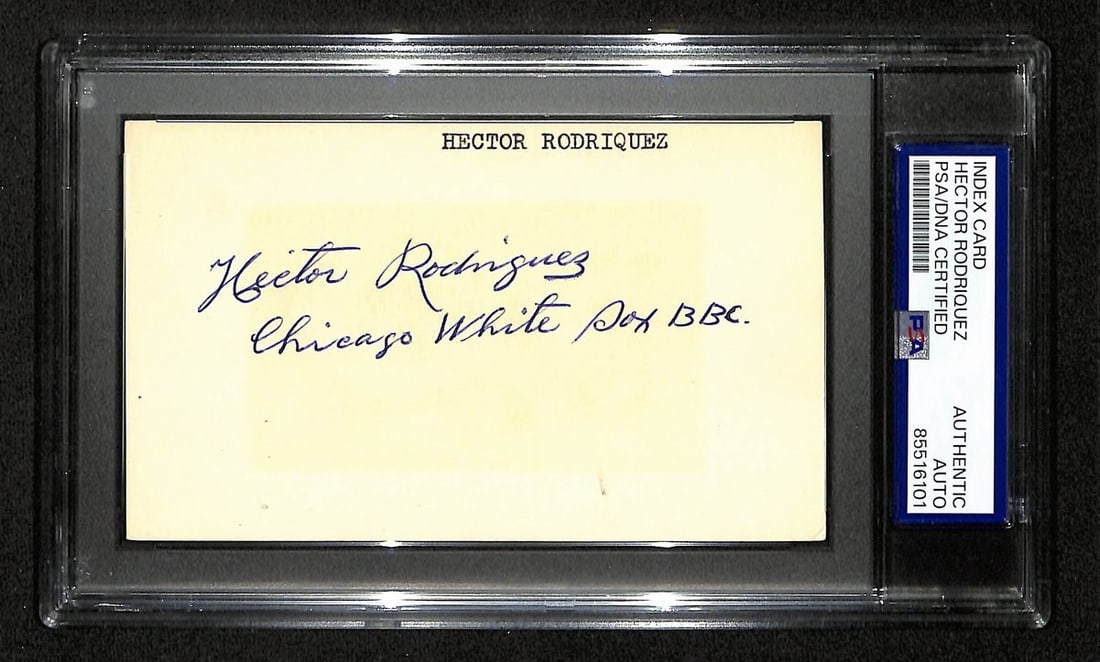 HECTOR RODRIQUEZ
Hector Rodriguez
Chicago White Sox BBC.
INDEX CARD
HECTOR RODRIQUEZ
PSA/DNA CERTIFIED
AUTHENTIC
AUTO
85516101
PSA